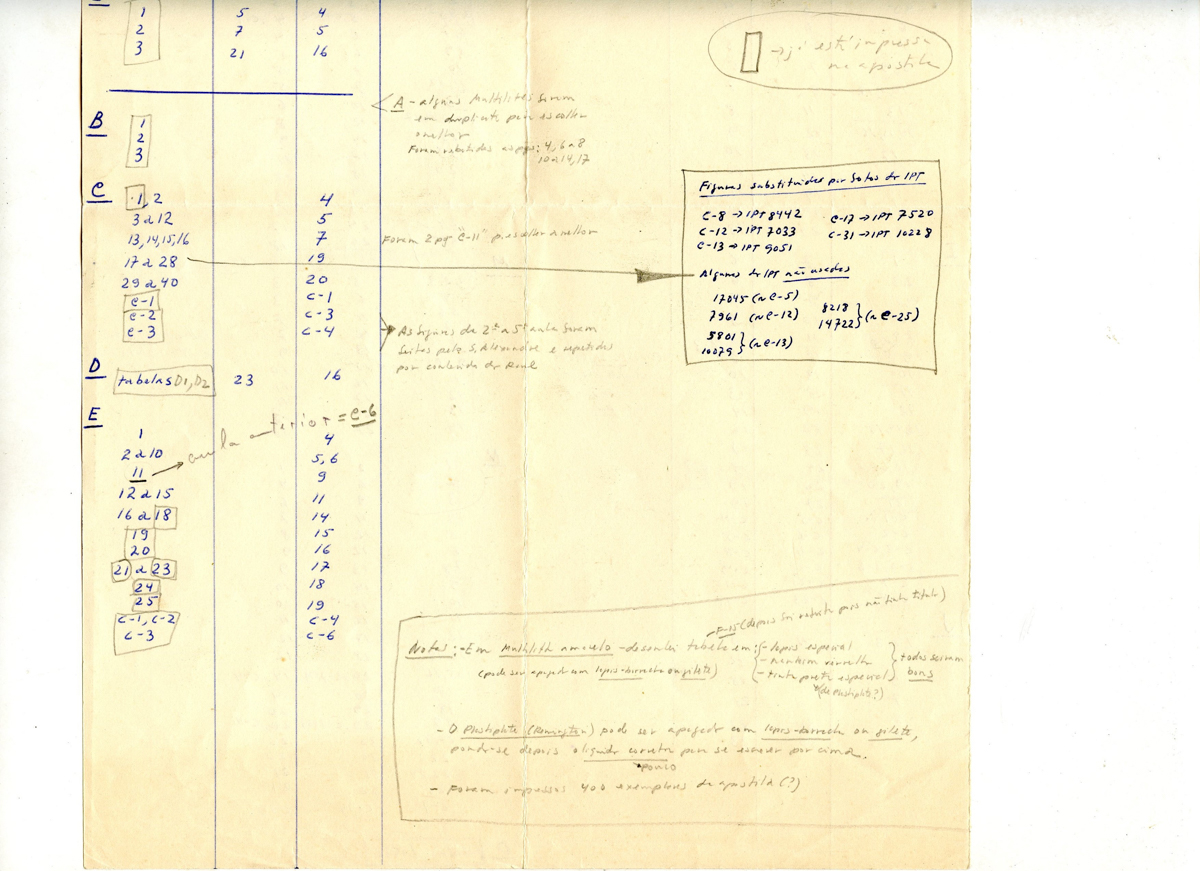 1 5 4
2 7 5
3 21 16
→ já está impressa
na apostila
A - alguns Multilites foram
em duplicata para escolher
a melhor
Foram rebatidas as pgs: 4, 6 a 8
10 a 14, 17
B
1
2
3
C
1, 2 4
3 a 12 5
13, 14, 15, 16 7
Foram 2 pg "C-11" p. escolher a melhor
17 a 28 19
29 a 40 20
C-1 C-1
C-2 C-3
C-3 C-4
Figuras substituidas por fotos do IPT
C-8 → IPT 8442 C-17 → IPT 7520
C-12 → IPT 7033 C-31 → IPT 10228
C-13 → IPT 9051
Algumas do IPT não usadas
17045 (n C-5)
7961 (n C-12) 8218
14722 } (n C-25)
5801
10079 } (n C-13)
As figuras da 2ª a 5ª aula foram
feitas pelo S. Alexandre e repetidas
por
D
tabelas D1, D2 23 16
E
aula anterior = C-6
1 4
2 a 10 5, 6
11 9
12 a 15 11
16 a 18 14
19 15
20 16
21 a 23 17
24 18
25 19
C-1, C-2 C-4
C-3 C-6
F-15 (depois foi para não título)
Notas: - Em Multilith amarelo - desenhei tabela em: - lapis especial
- nankim vermelho
- tinta preta especial
} todas foram
bons
(pode ser apagado com lapis-borracha ou gilete)
(de Plastiplate?)
- O Plastiplate (Remington) pode ser apagado com lapis-borracha ou gilete,
pondo-se depois o liquido corretor para se escrever por cima.
pouco
- Foram impressas 400 exemplares da apostila (?)